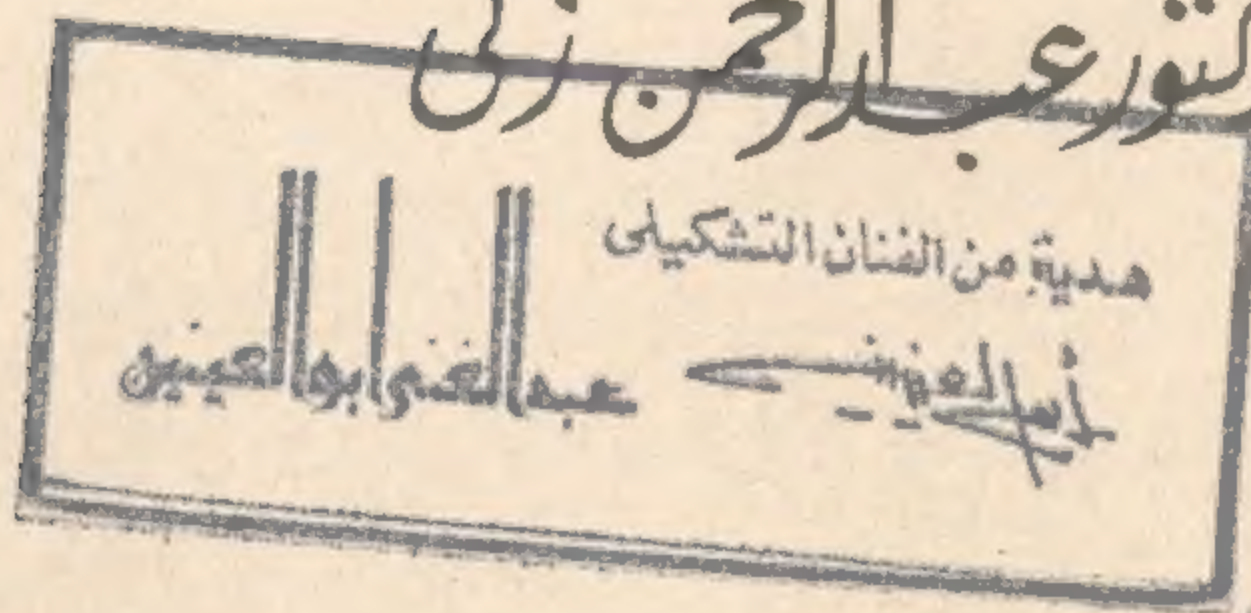 كتور عبد الرحمن زكى
هدية من الفنان التشكيلى
عبد الغنى ابو العينين